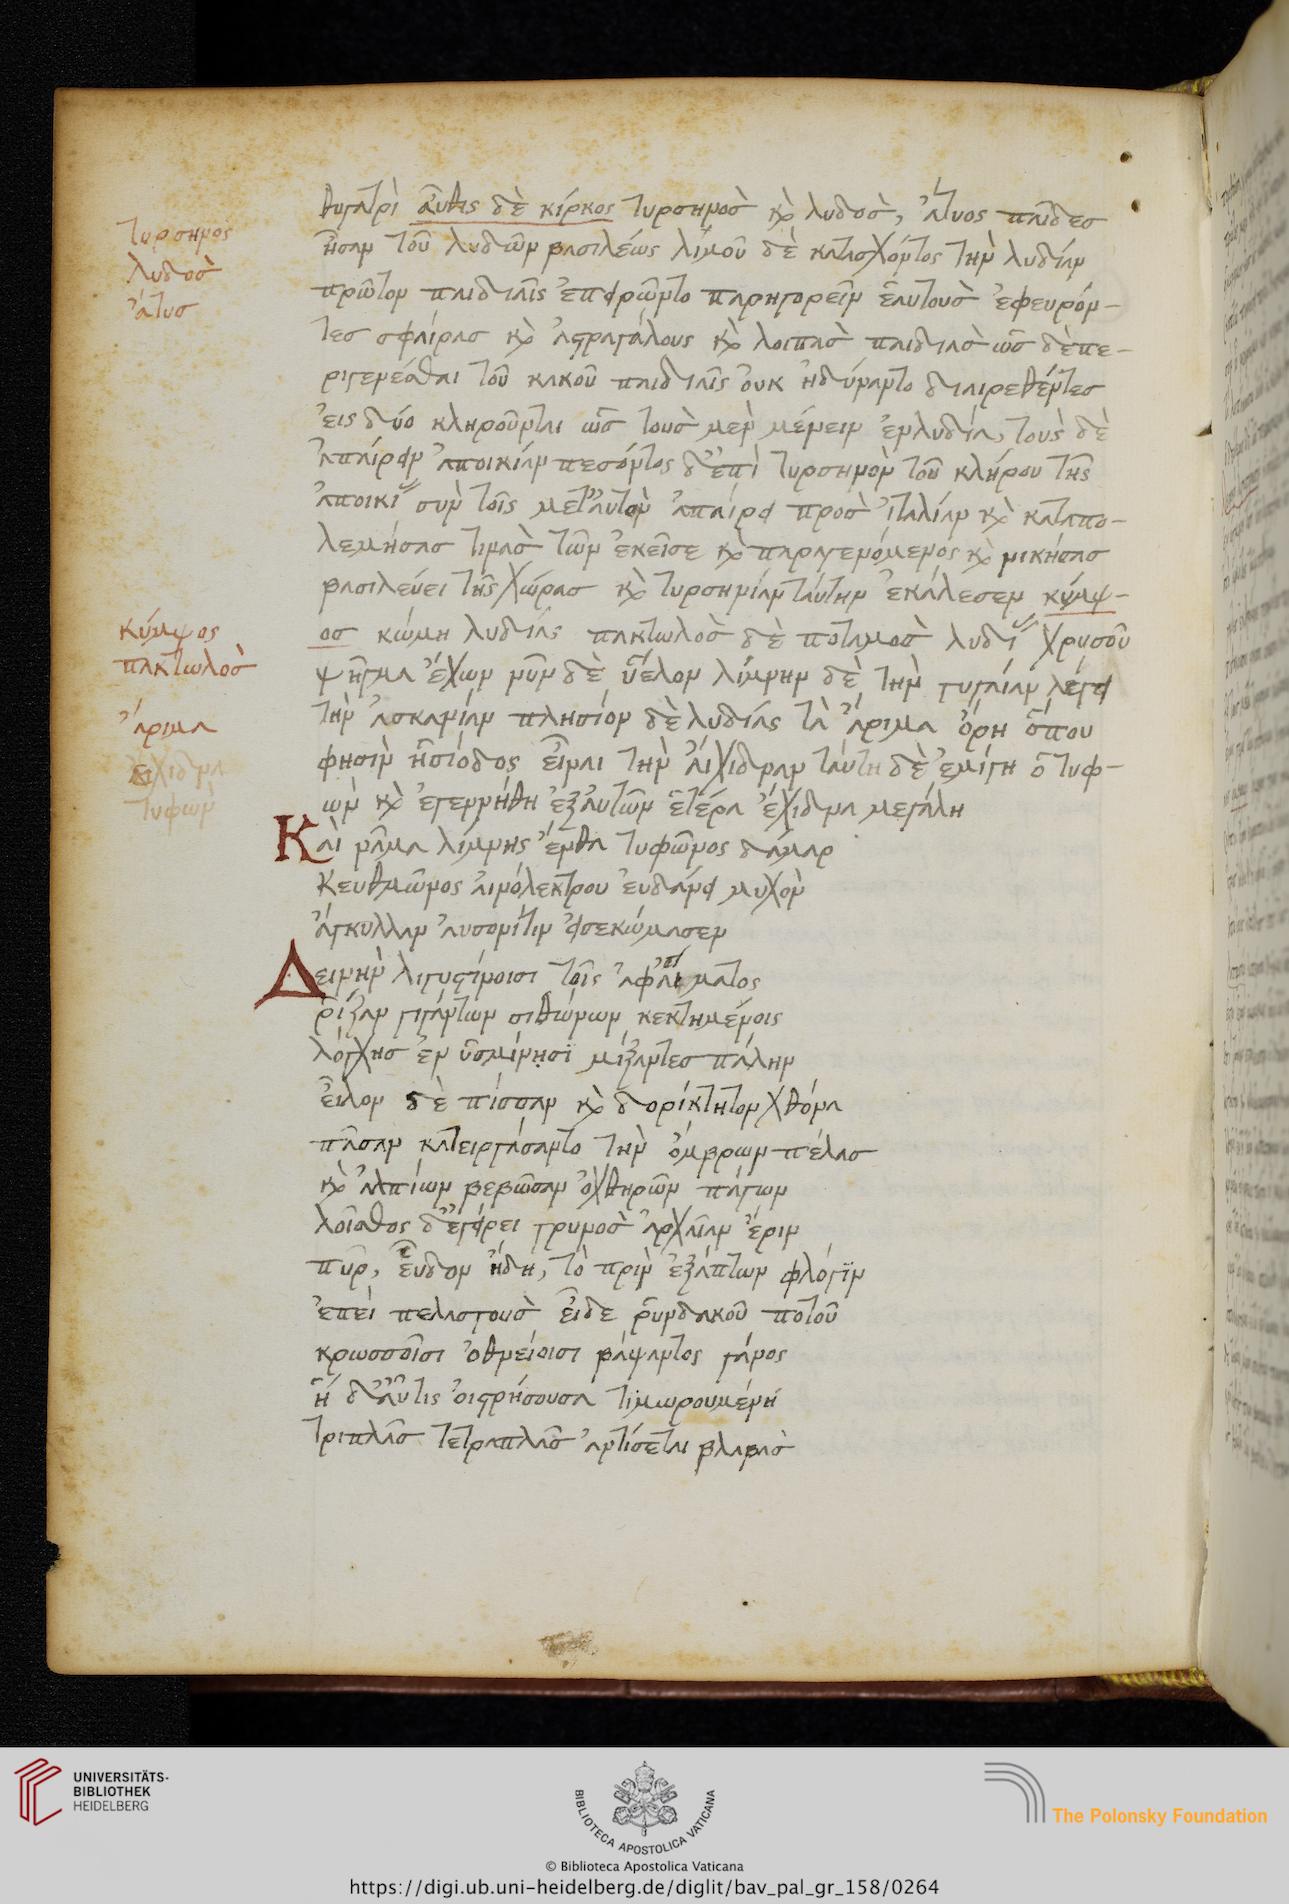 θυγατρὶ αὖθις δὲ κίρκος τυρσηνοσ̀ κ̀ λυδοσ̀, ἄτυος παῖδεσ
τυρσηνός
ἦσαν τοῦ λυδῶν βασιλέως λιμοῦ δὲ κατασχόντος τὴν λυδίαν
λυδοσ̀
πρῶτον παιδιαῖς ἐπειρῶντο παρηγορεῖν ἑαυτουσ̀ ἐφευρόν-
ἄτυσ
τεσ σφαίρασ κ̀ ἀστραγάλους κ̀ λοιπασ̀ παιδιασ̀ ὡσ̃ δὲ πε-
ριγενέσθαι τοῦ κακοῦ παιδιαῖς οὐκ ἠδύναντο διαιρεθέντεσ
εἰς δύο κληροῦνται ὡσ̃ τουσ̀ μὲν μένειν ἐν λυδία, τοὺς δὲ
ἀπαίρειν ἀποικίαν πεσόντος δ' ἐπὶ τυρσηνὸν τοῦ κλήρου τῆς
ἀποικίας σὺν τοῖς μετ' αὐτὸν ἀπαίρει προσ̀ ἰταλίαν κ̀ καταπο-
λεμήσασ τινασ̀ τῶν ἐκεῖσε κ̀ παραγενόμενος κ̀ νικήσασ
βασιλεύει τῆς χώρασ κ̀ τυρσηνίαν ταύτην ἐκάλεσεν κύμψ-
κύμψος
οσ κώμη λυδίας πακτωλοσ̀ δὲ ποταμοσ̀ λυδίας χρυσοῦ
πακτωλοσ̀
ψῆγμα ἔχων νῦν δὲ ὕελον λίμνην δὲ τὴν γυγαίαν λέγει
ἄριμα
τὴν ἀσκανίαν πλησίον δὲ λυδίας τὰ ἄριμα ὄρη ὅπου
ἔχιδνα
φησὶν ἡσίοδος εἶναι τὴν αἴχιδναν ταύτη δὲ ἐμίγη ὁ τυφ-
τυφὼν
ὼν κ̀ ἐγεννήθη ἐξ αὐτῶν ἑτέρα ἔχιδνα μεγάλη
Καὶ νᾶμα λίμνης ἔνθα τυφῶνος δάμαρ
κευθμῶνος αἰνόλεκτρου ἐυδαίνει μυχὸν
ἄγκυλλαν αυσονίτιν εἰσεκώμασεν
Δεινὴν λιγυστίνοισι τοῖς ἀφ' αἵματος
ῥίζαν γιγάντων σιθώνων κεκτημένοις
λόγχησ ἐν ὑσμίνησϊ μίξαντεσ πάλην
εἷλον δὲ πίσσαν κ̀ δορίκτητον χθόνα
πᾶσαν κατειργάσαντο τὴν ὄμβρων πέλασ
κ̀ ἀλπίων βεβῶσαν ὀχθηρῶν πάγων
λοῖσθος δ' ἐγείρει γρυνοσ̀ ἀρχαῖαν ἔριν
πῦρ, εὗδον ἤδη, τὸ πρὶν ἐξάπτων φλόγϊν
ἐπεὶ πελασγουσ̀ εἶδε ῥυνδακοῦ ποτοῦ
κρωσσοῖσι ὀθνείοισι βάψαντος γάνος
ἡ δ' αὖτις οἰστρήσουσα τιμωρουμένη
τριπλᾶσ τετραπλᾶσ ἀντίσεται βλαβασ̀
UNIVERSITÄTS-
BIBLIOTHEK
HEIDELBERG
BIBLIOTECA APOSTOLICA VATICANA
The Polonsky Foundation
© Biblioteca Apostolica Vaticana
https://digi.ub.uni-heidelberg.de/diglit/bav_pal_gr_158/0264